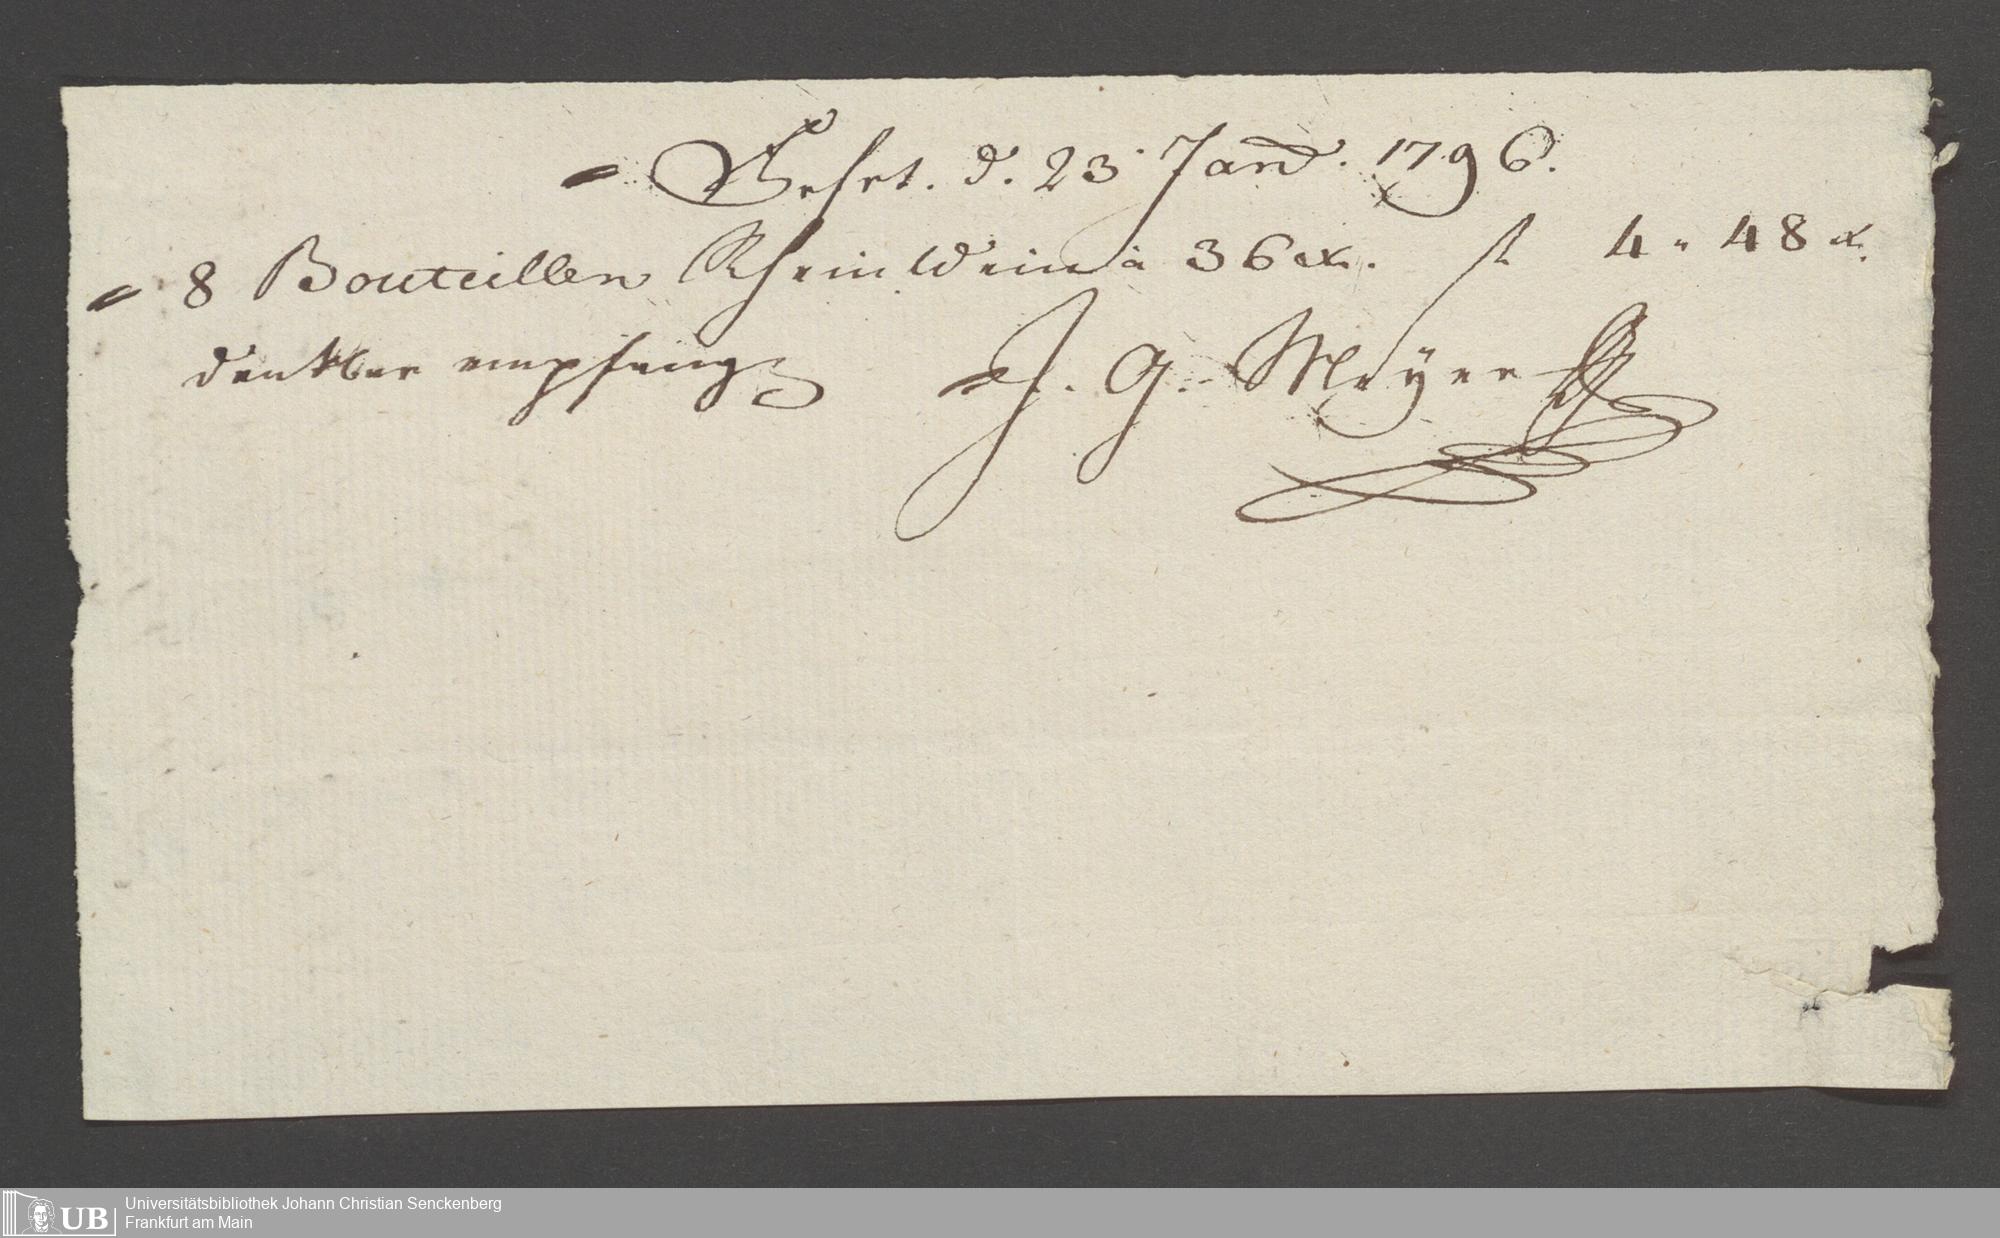 d. 23 Janr. 1796.
8 Bouteillen Rheinwein a 36 xr. fl 4 " 48 xr.
dankbar empfangen J. G. Meyer
UB Universitätsbibliothek Johann Christian Senckenberg
Frankfurt am Main